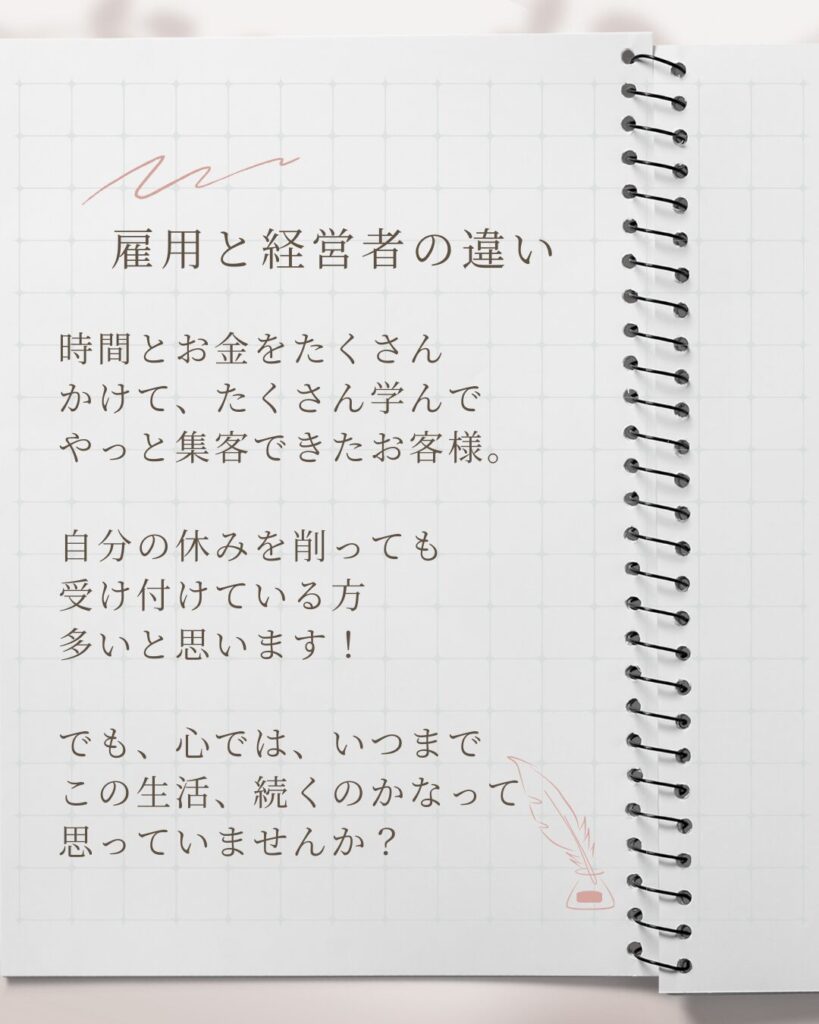 雇用と経営者の違い
時間とお金をたくさん
かけて、たくさん学んで
やっと集客できたお客様。
自分の休みを削っても
受け付けている方
多いと思います！
でも、心では、いつまで
この生活、続くのかなって
思っていませんか？